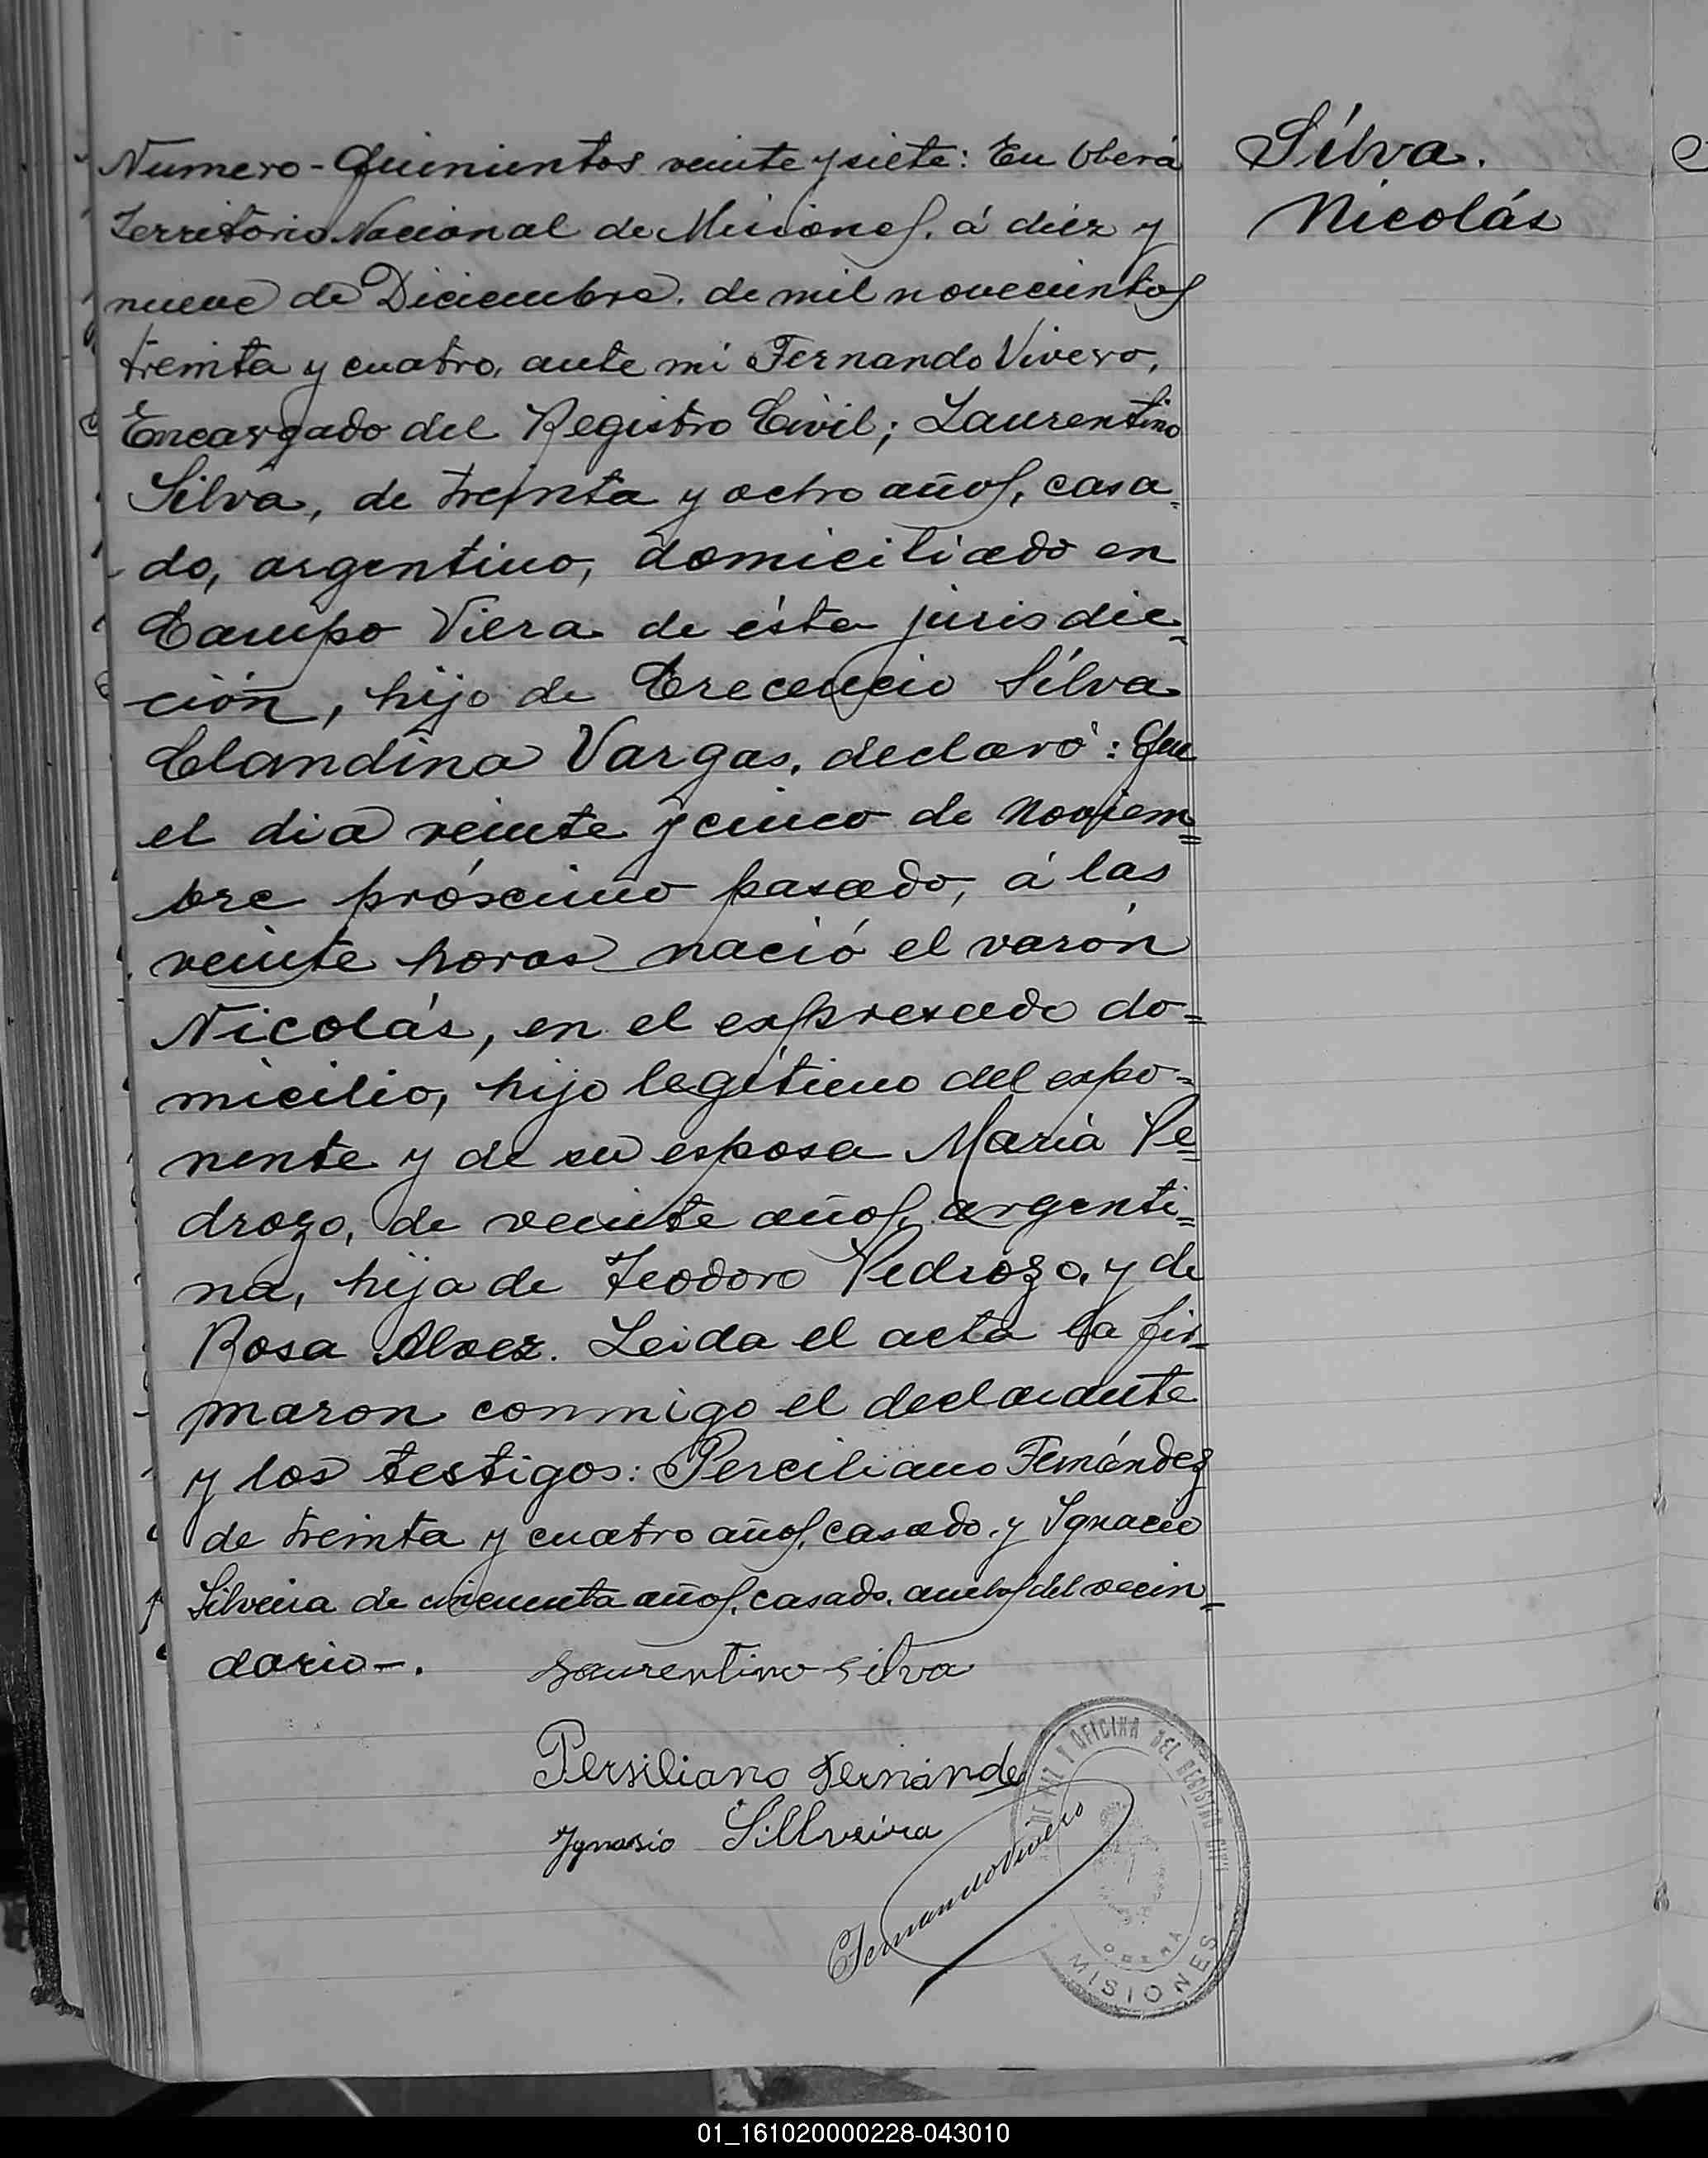 Numero - Quinientos veinte y siete: En Oberá
Territorio Nacional de Misiones, á diez y
nueve de Diciembre, de mil novecientos
treinta y cuatro, ante mi Fernando Vivero,
Encargado del Registro Civil; Laurentino
Silva, de treinta y ocho años, casa=
do, argentino, domiciliado en
Campo Viera de ésta jurisdic=
ción, hijo de Crecencio Silva
Clandina Vargas, declaró: Que
el dia veinte y cinco de Noviem=
bre próximo pasado, á las
veinte horas nació el varón
Nicolás, en el expresado do=
micilio, hijo legítimo del expo=
nente y de su esposa Maria Pe=
drozo, de veinte años, argenti=
na, hija de Teodoro Pedrozo, y de
Rosa Alvez. Leida el acta la fir=
maron conmigo el declarante
y los testigos: Perciliano Fernández
de treinta y cuatro años, casado, y Ignacio
Silveira de cincuenta años, casado, ambos del vecin=
dario-.
Laurentino Silva
Persiliano Fernánde
Ygnasio Sillveira
Fernando Vivero
DE PAZ Y OFICINA DEL REGISTRO CIVIL
OBERÁ
MISIONES
Silva.
Nicolás
01_161020000228-043010